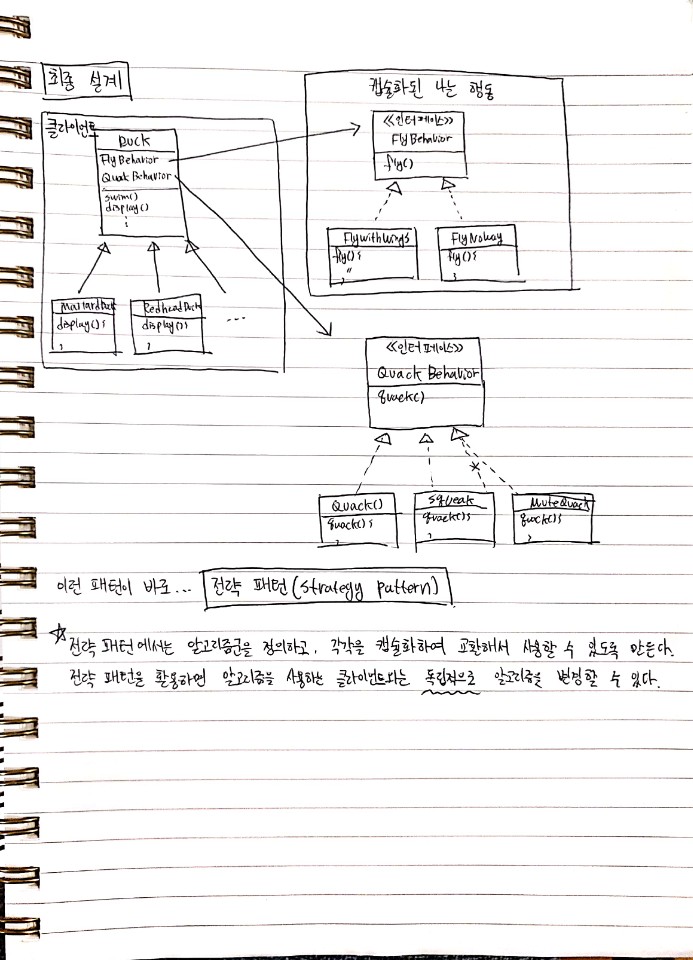 최종 설계
클라이언트
Duck
FlyBehavior
Quak Behavior
swim()
display()
MallardDuck
display(){
}
RedheadDuck
display(){
}
...
캡슐화된 나는 행동
<<인터페이스>>
FlyBehavior
fly()
FlywithWings
fly(){
"
}
FlyNoway
fly(){
}
<<인터페이스>>
Quack Behavior
quack()
Quack()
quack(){
}
Squeak
quack(){
}
MuteQuack
quack(){
}
이런 패턴이 바로... 전략 패턴(strategy pattern)
☆ 전략 패턴에서는 알고리즘군을 정의하고, 각각을 캡슐화하여 교환해서 사용할 수 있도록 만든다.
전략 패턴을 활용하면 알고리즘을 사용하는 클라이언트와는 독립적으로 알고리즘을 변경할 수 있다.